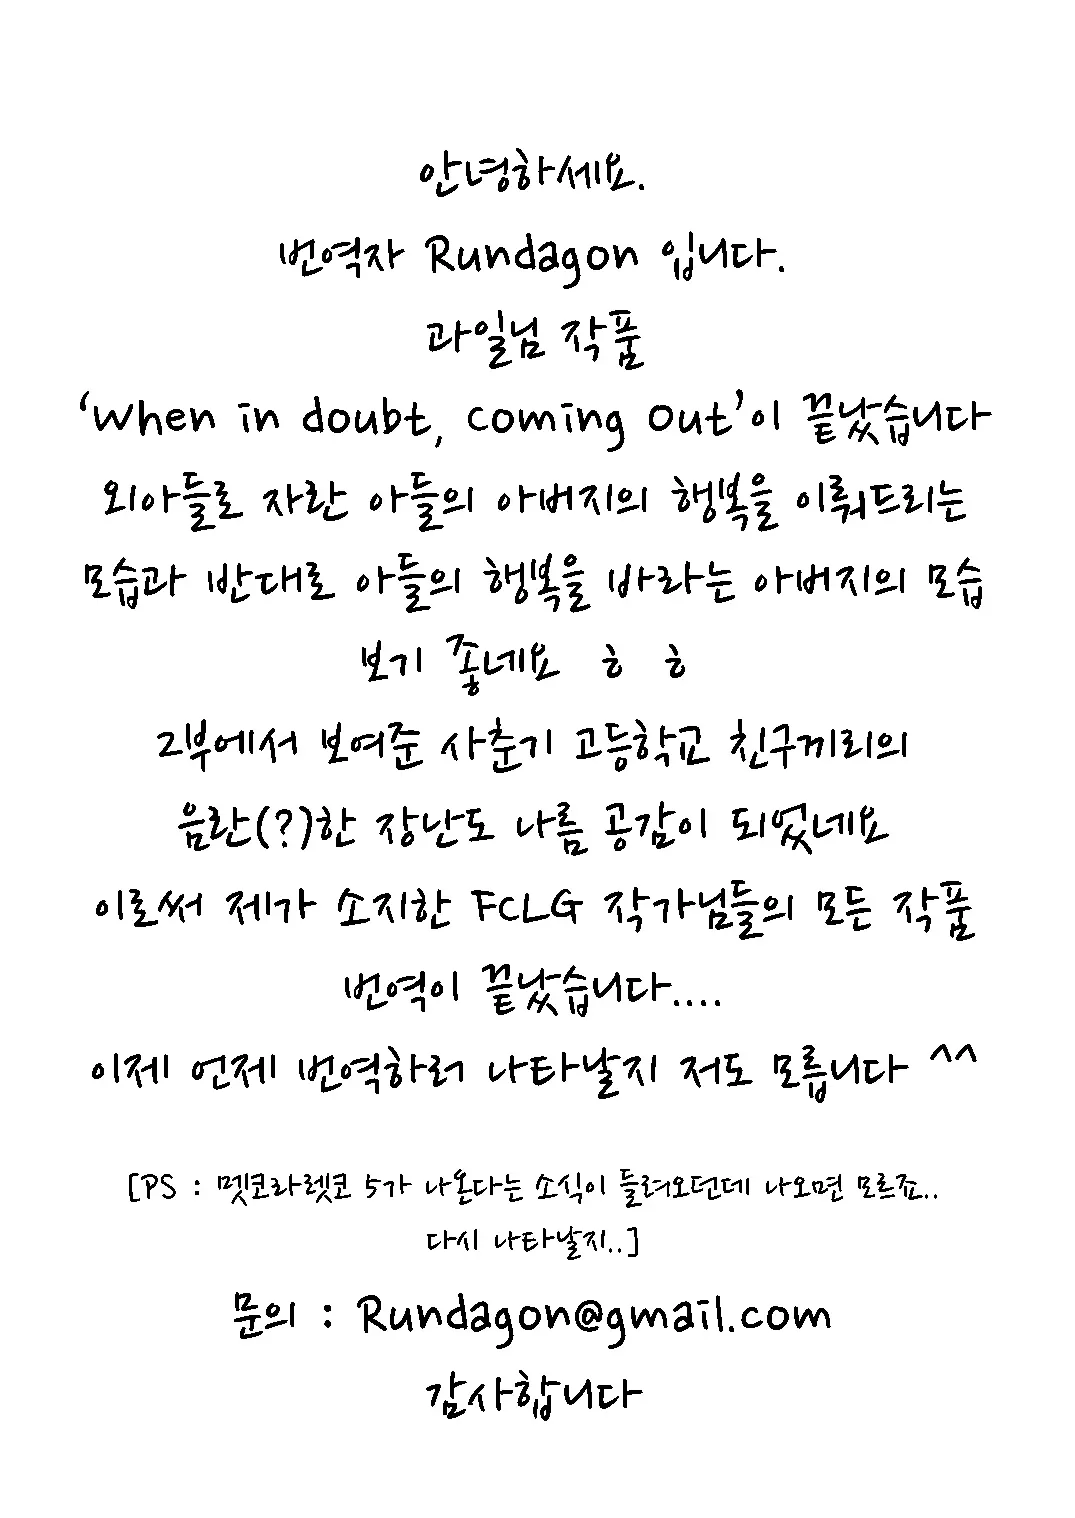 안녕하세요.
번역자 Rundagon 입니다.
과일님 작품
‘When in doubt, coming out’이 끝났습니다
외아들로 자란 아들의 아버지의 행복을 이뤄드리는
모습과 반대로 아들의 행복을 바라는 아버지의 모습
보기 좋네요 ㅎ ㅎ
2부에서 보여준 사춘기 고등학교 친구끼리의
음란(?)한 장난도 나름 공감이 되었네요
이로써 제가 소지한 FCLG 작가님들의 모든 작품
번역이 끝났습니다....
이제 언제 번역하러 나타날지 저도 모릅니다 ^^
[PS : 멧코라렛코 5가 나온다는 소식이 들려오던데 나오면 모르죠..
다시 나타날지..]
문의 : Rundagon@gmail.com
감사합니다